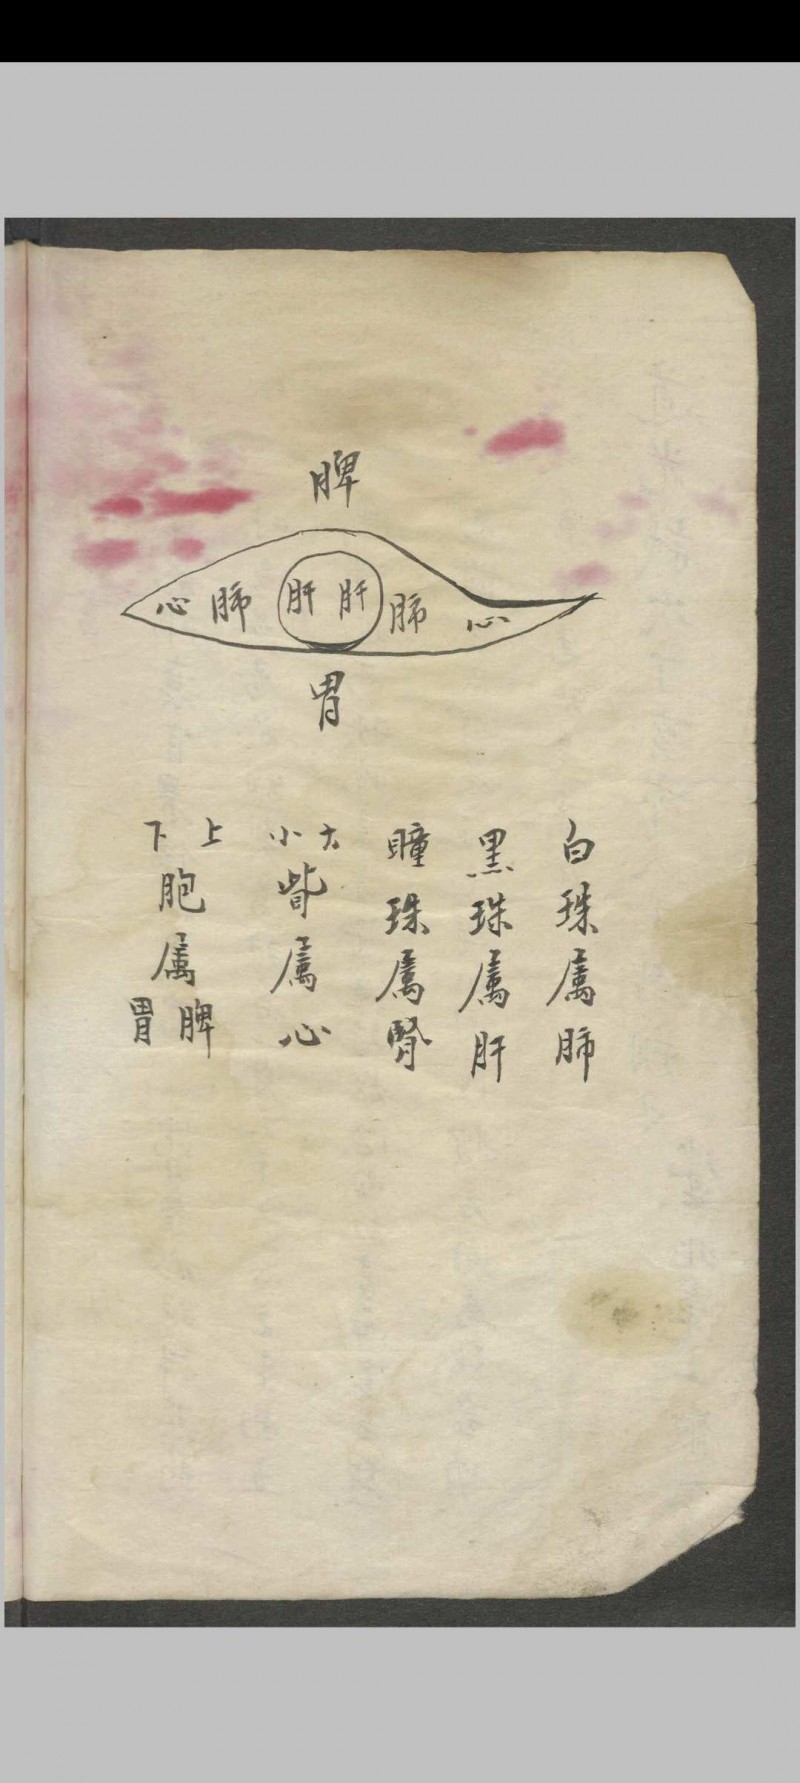 脾
心 肺 肝 肝 肺 心
胃
白珠属肺
黑珠属肝
瞳珠属腎
大小眥属心
上下胞属脾胃